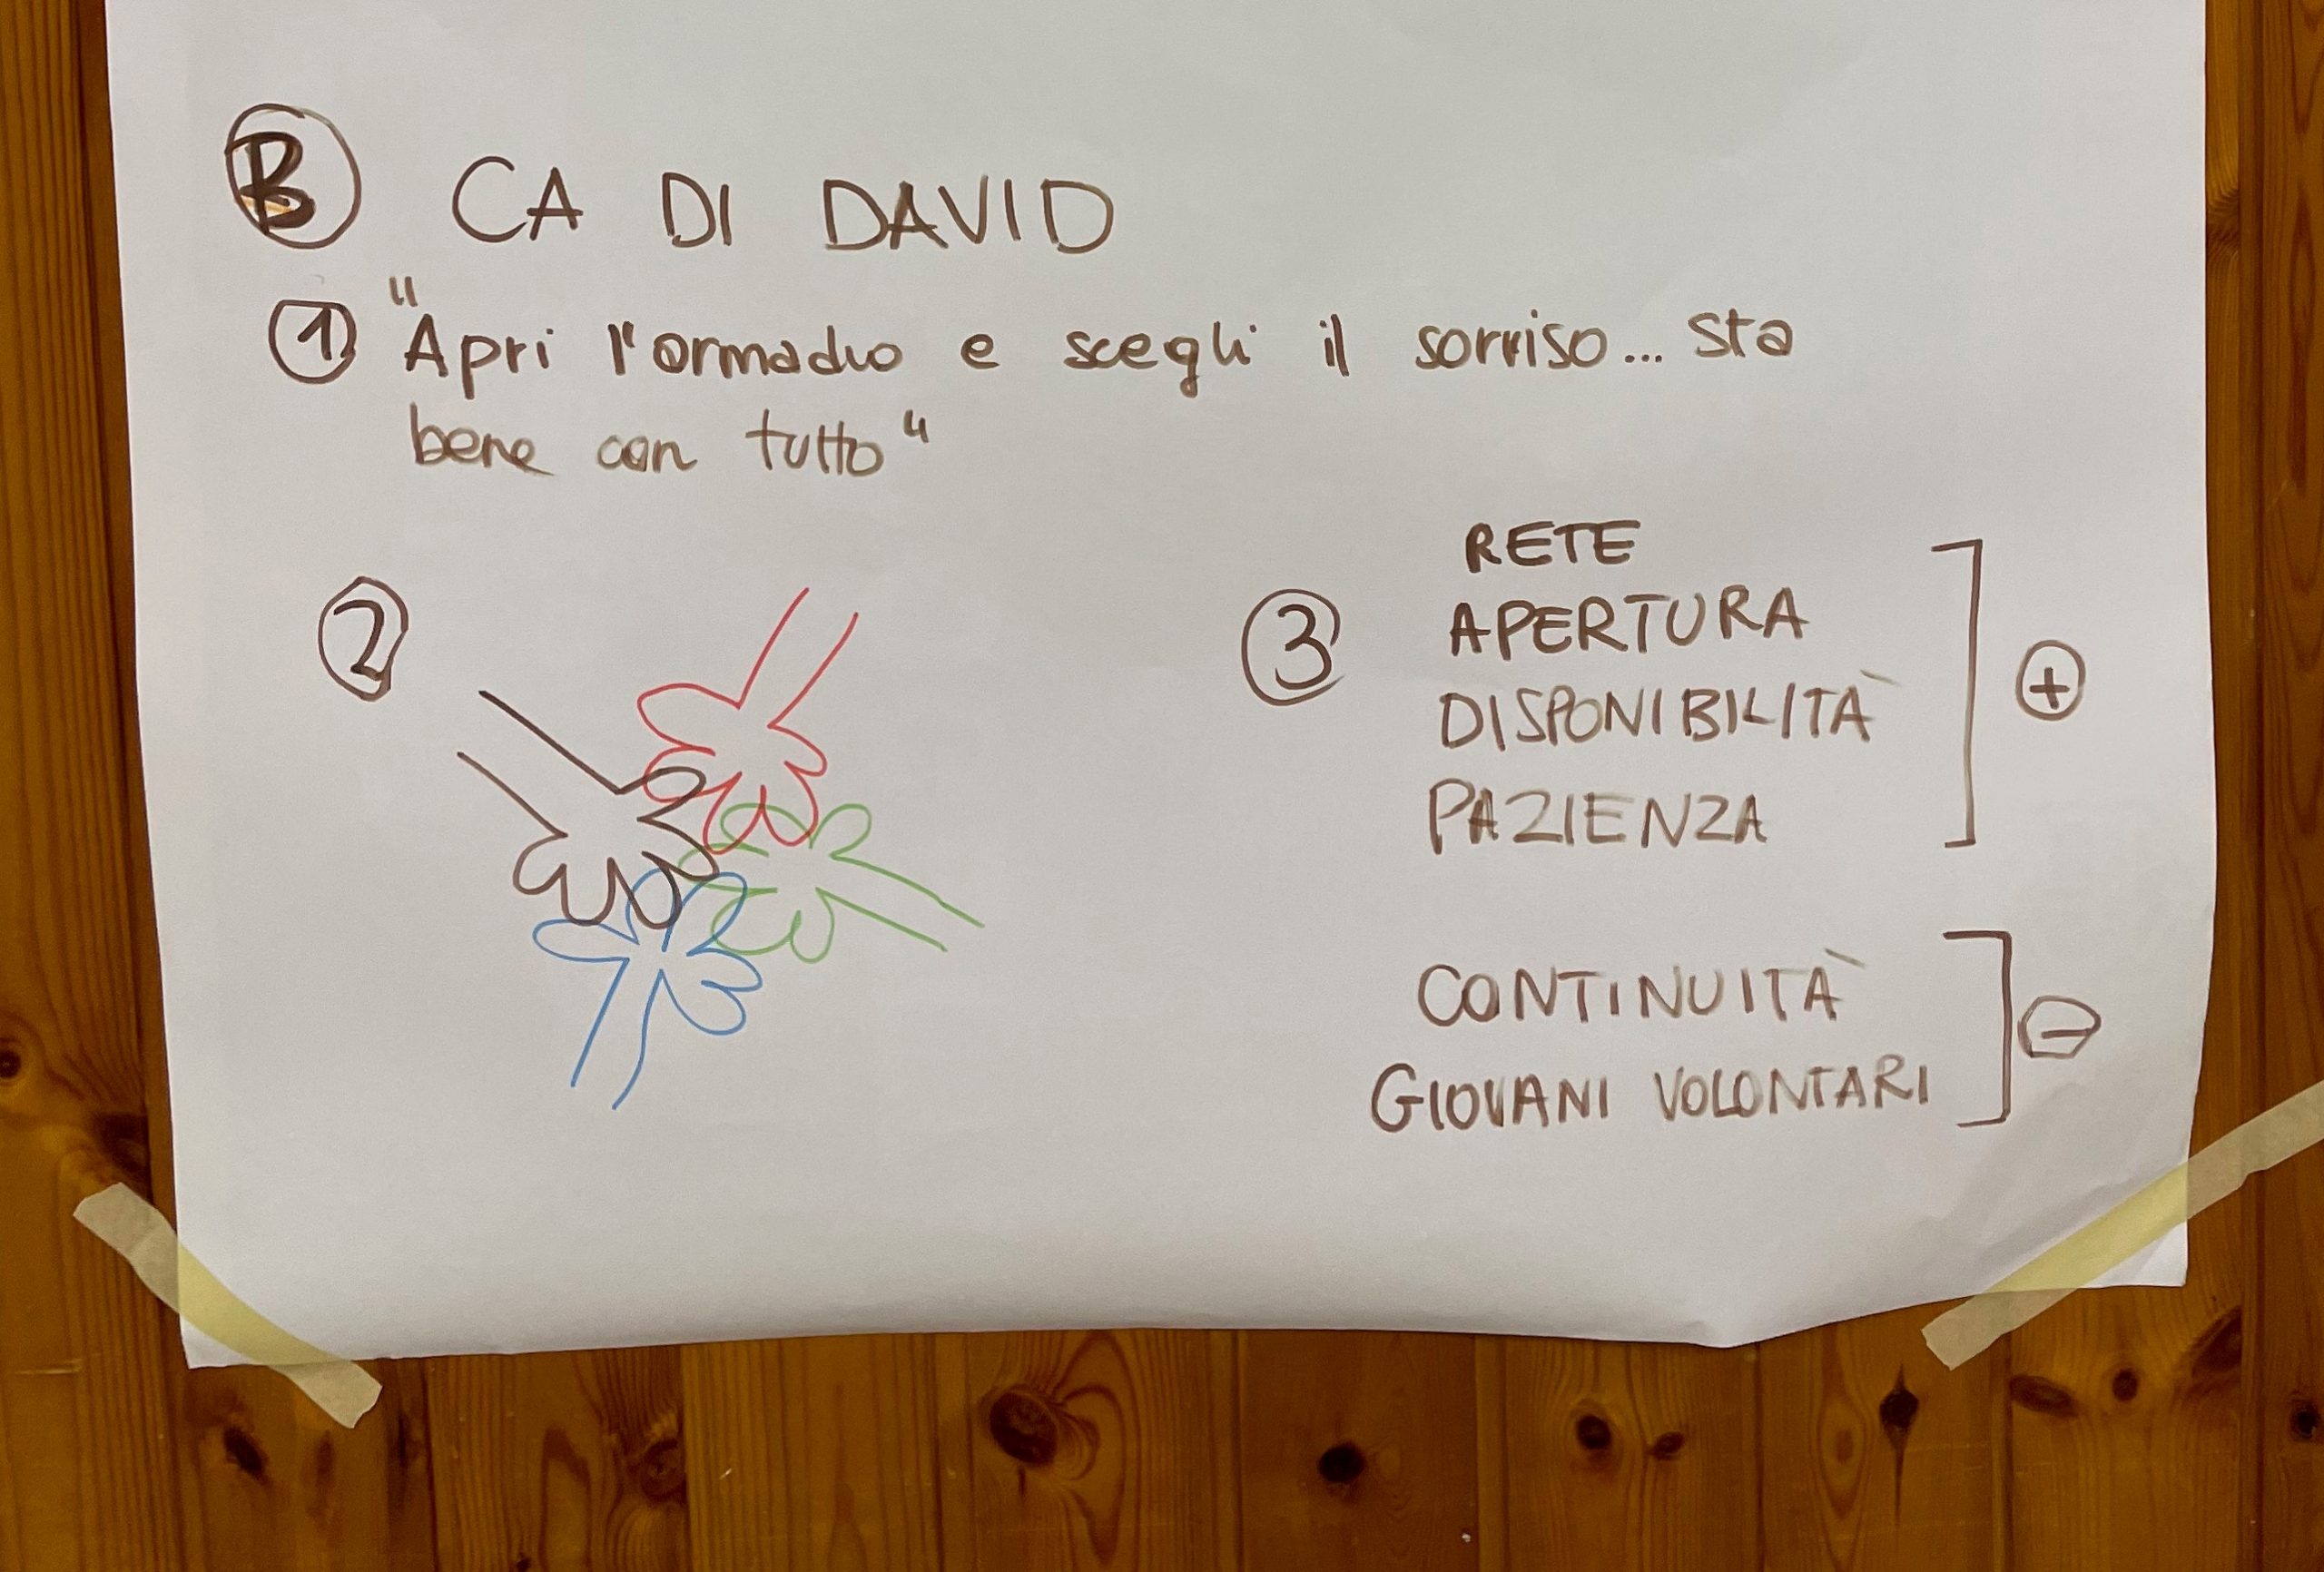 B CA DI DAVID
1 "Apri l'armadio e scegli il sorriso... sta
bene con tutto"
2
3
RETE
APERTURA
DISPONIBILITÀ
PAZIENZA
+
CONTINUITÀ
GIOVANI VOLONTARI
-